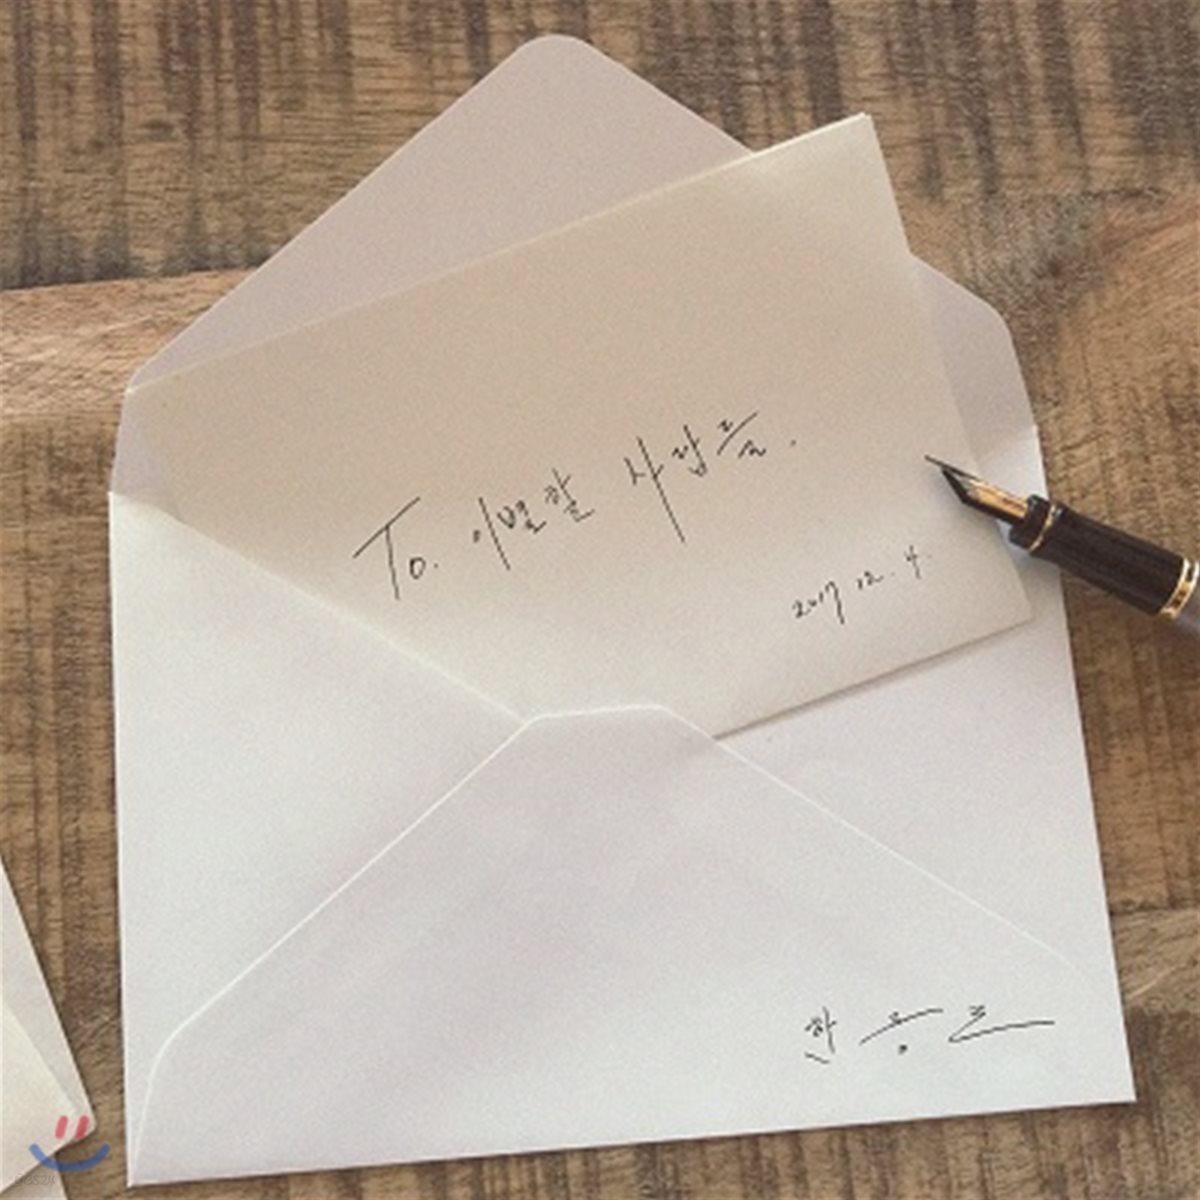 To. 이별할 사람들.
2017 12. 4.
한웅르